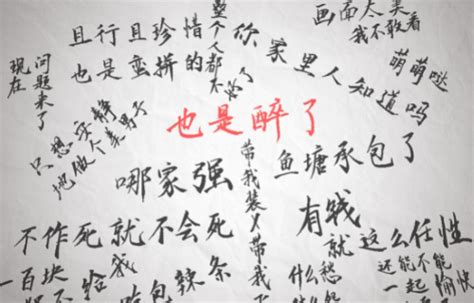 且行且珍惜
整个人都
不好了
你家里人知道吗
画面太美
我不敢看
萌萌哒
现在
问题来了
也是蛮拼的
只想安静
地做个美男子
也是醉了
哪家强
带我装X带我
鱼塘承包了
不作死就不会死
有钱
就这么任性
一百块
不给我
包辣条
什么
还能不能
一起愉